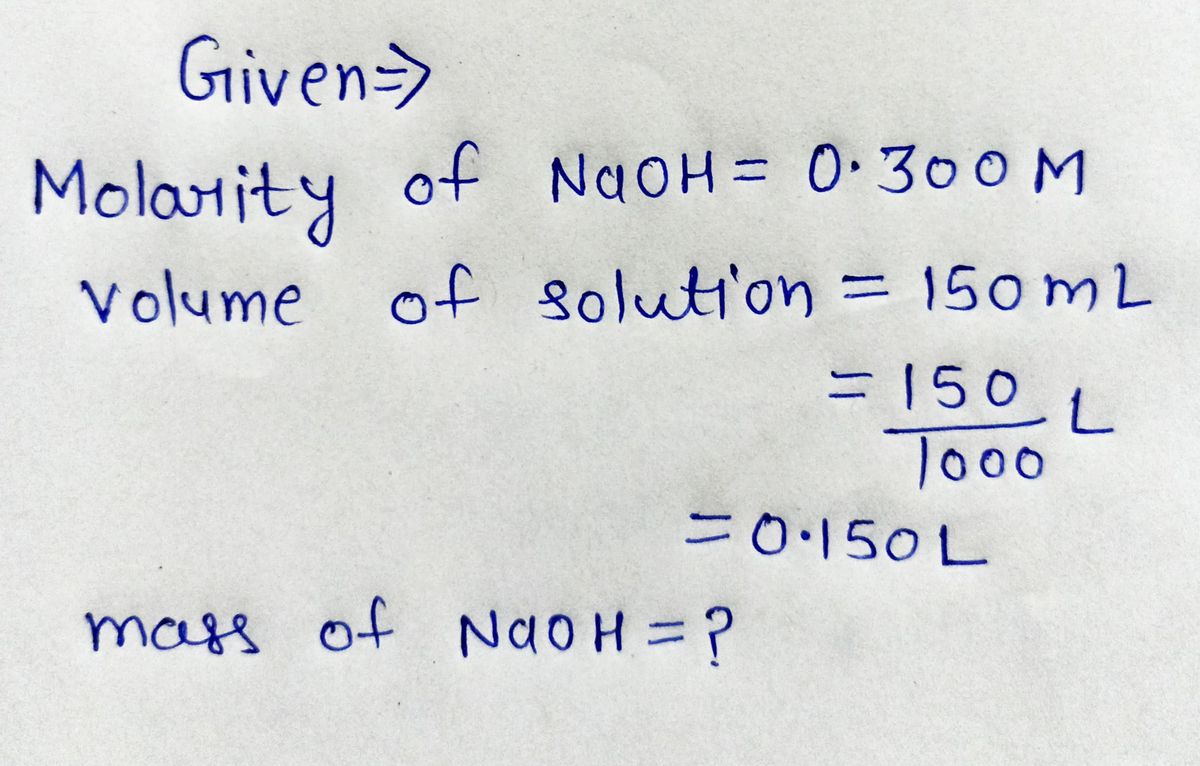 Given⇒
Molarity of NaOH = 0.300 M
volume of solution = 150 mL
= 150/1000 L
= 0.150 L
mass of NaOH = ?